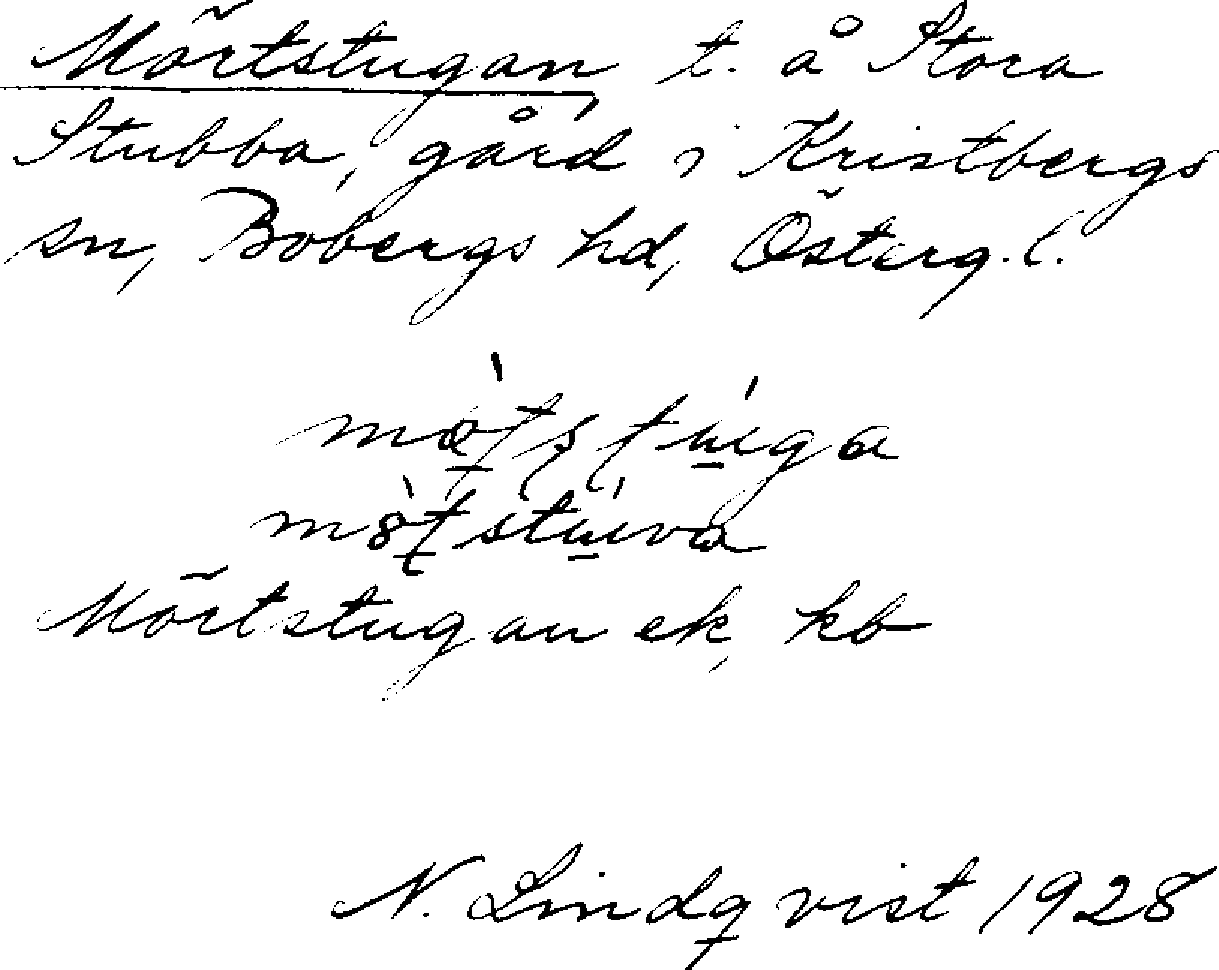 Mörtstugan, t. å Stora
Stubba, gård i Kristbergs
sn, Bobergs hd, Österg.l.
Mörtstugan ek, kb
N. Lindqvist 1928